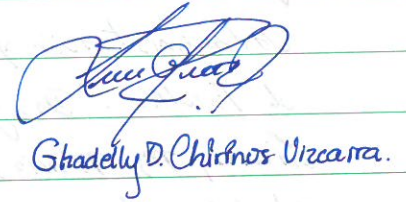 Ghadelly D. Chirinos Vizcarra.